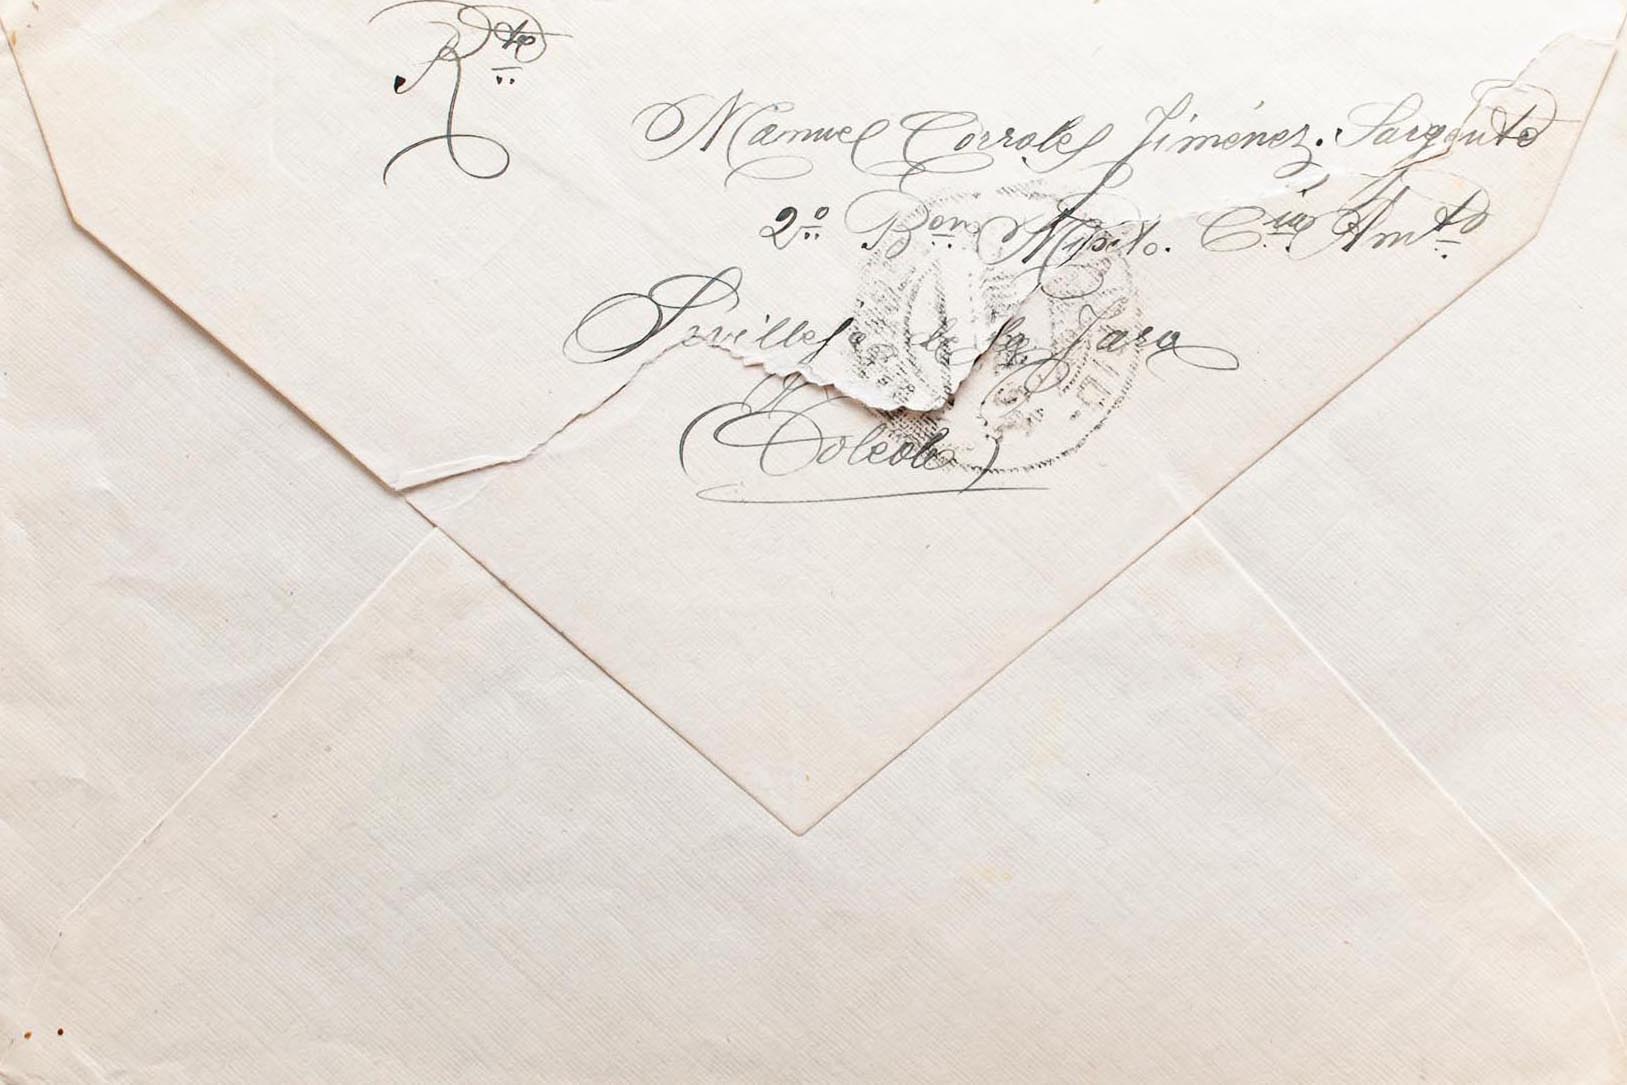 Rte
Manuel Corrales Jiménez. Sargento
2º Bon Mixto. Cia Amto
Sevilleja de la Jara
(Toledo)